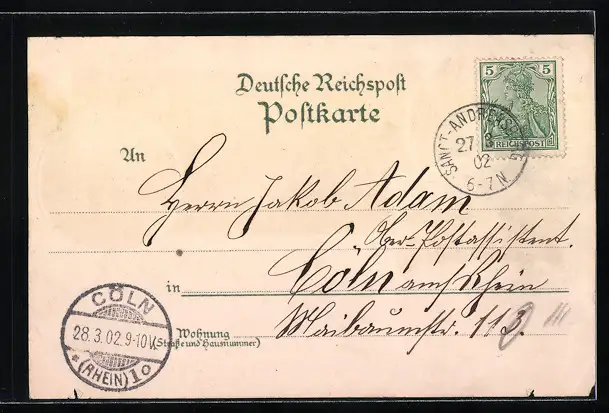 Deutsche Reichspost
Postkarte
5 5
REICHSPOST
SANCT-ANDREASBERG
27. 3
02
6-7 N
An
Herrn Jakob Adam
Ober-Postassistent.
in Cöln am Rhein
Wohnung
(Straße und Hausnummer)
Maibaumstr. 113.
CÖLN
28.3.02.9-10V.
* (RHEIN) 1 o